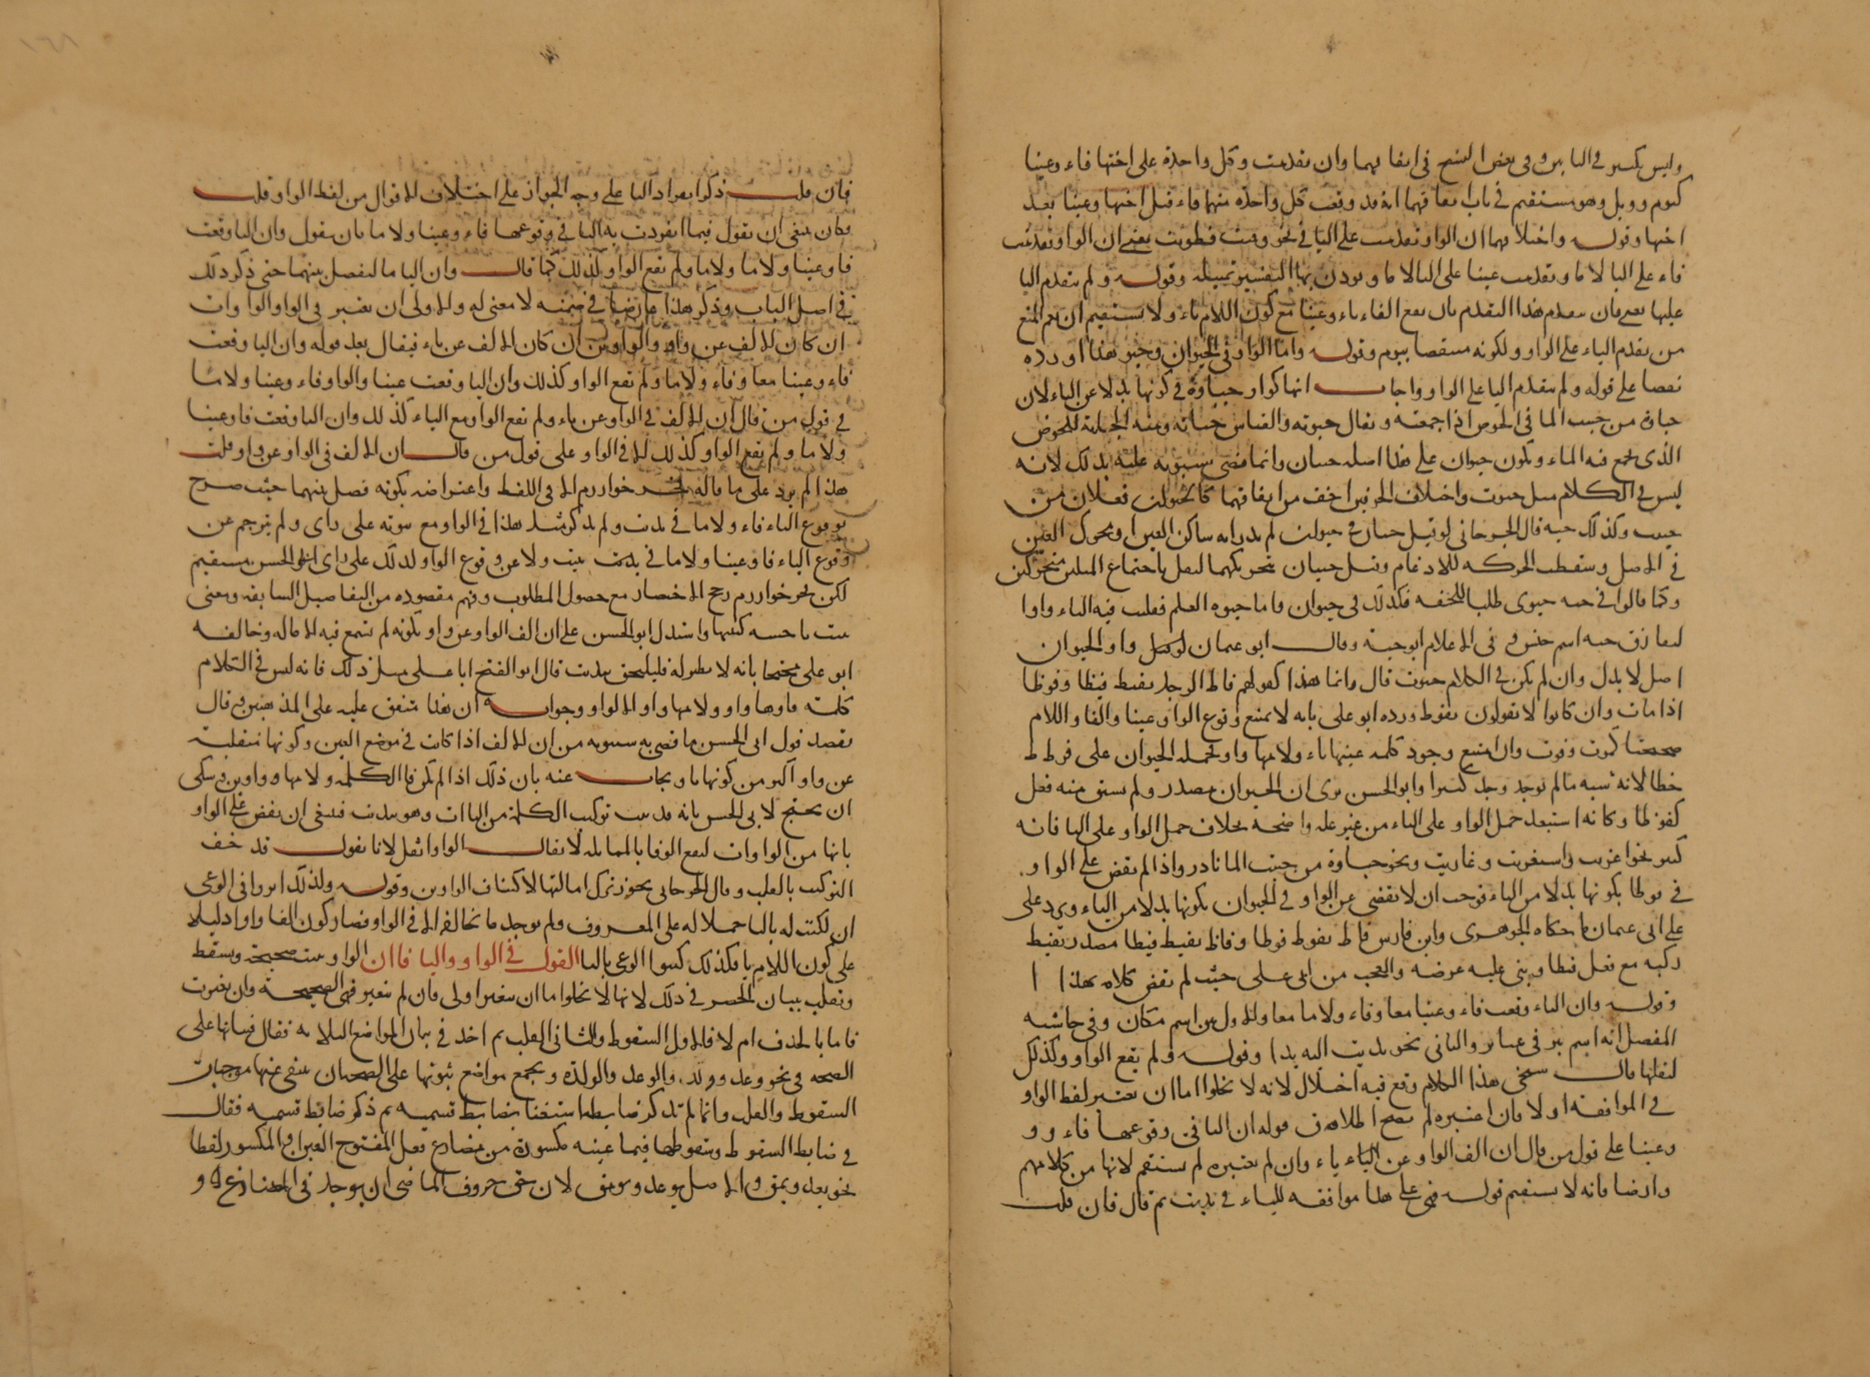 وليس بكسر في البابين وفي بعض النسخ في ايفا بهما وان تقدمت وكل واحدة على اختها فاء وعينا
كيوم وويل وهو مستقيم في باب تعاقبهما انه قد وقعت كل واحدة منهما فاء قبل اختها وعينا بعد
اختها وقوله واختلافهما ان الواو تقدمت على اليا في نحو وقيت وطويت يعني ان الواو تقدمت
فاء على اليا لاما وتقدمت عينا على اليا لاما وقوله ولم يتقدم اليا
عليها يعني فان تقدم هذا التقدم بان تقع الفاء ياء وعينا مع كون اللام ياء ولا يستقيم ان يعم المنع
من تقدم الياء على الواو ولكونه منتقضا بيوم وقوله واما الواو في الحيوان وحيوة هذا اورده
نقضا على قوله ولم يتقدم اليا على الواو واجاب انها كواو جباوة في كونها بدلا عن الياء لان
جباوة من جبيت الما في الحوض اذا جمعته ويقال جبوته والقياس جباية ومنه الجابية للحوض
الذي يجمع فيه الماء ويكون حيوان على هذا اصله حييان وانما قضى سيبويه عليه بذلك لانه
ليس في الكلام مثل حيوت واختلاف الحرفين اخف من اتفاقهما فعلان من
حييت وكذلك حية قال الجرجاني لو قيل حيان في حيوان لم يدر انه ساكن العين او متحرك العين
في الاصل وسقطت الحركة للادغام وقيل حييان بتحريكهما لثقل باجتماع المثلين متحركين
وكما قالوا في حية حيوي طلبا للخفة فكذلك في حيوان واما حيوه العلم فقلبت فيه الياء واوا
ليفارق حية اسم جنس في الاعلام ابو حية وقال ابو عثمان واو الحيوان
اصل لا بدل وان لم يكن في الكلام حيوت قال وانما هذا كقولهم فاظ الرجل يفيظ فيظا وفوظا
اذا مات وان كانوا لا يقولون يفوظ ورده ابو علي بانه لا يمتنع وقوع الواو عينا والفا واللام
صحيحتان وان امتنع وجود كلمة عينها ياء ولامها واو الحيوان على فوظ
خطا لانه شبه ما لم يوجد وجد كثيرا وابو الحسن يرى ان الحيوان مصدر ولم يشتق منه فعل
كفوظ وكانه استبعد حمل الواو على الياء من غير علة واضحة بخلاف حمل الواو على اليا فانه
كثير نحو اغزيت واستغزيت وغازيت ونحو جباوة من جبيت الما نادر واذا لم يقض على الواو
في فوظ بكونها بدلا من الياء فوجب ان لا نقضي عن الواو في الحيوان بكونها بدلا من الياء ويرد على
على ابي عثمان ما حكاه الجوهري وابن فارس فاظ يفوظ فوظا وفاظ يفيظ فيظا مصدر تفيظ
ركبه مع فعل فيظا وبنى عليه غرضه والعجب من ابي علي حيث لم ينقض كلامه بهذا
وقوله وان الياء وقعت فاء وعينا معا وفاء ولاما معا والاول يين اسم مكان وفي حاشية
المفصل انه اسم بئر في عبائر والثاني نحو يديت اليه يدا وقوله ولم يقع الواو وكذلك
لثقلها قال شيخي هذا الكلام وقع فيه اختلال لانه لا يخلو اما ان يعتبر لفظ الواو
في الموافقة او لا فان اعتبره لم يصح اطلاقه قوله ان اليا في وقوعها فاء و و
وعينا على قول من قال ان الف الواو عن الياء ياء وان لم يعتبره لم يستقم لانها من كلامهم
وايضا فانه لا يستقيم قوله فهي على هذا موافقة للياء في يديت ثم قال فان قلت
فان قلت ذكروا بعد اد اليا على وجه الجواز على اختلاف الاقوال من لفظ الواو قلت
فكان ينبغي ان يقول فيما انفردت به اليا في وقوعها فاء وعينا ولاما بان يقول وان اليا وقعت
فا وعينا ولاما ولاما ولم تقع الواو كذلك كما قال وان اليا ما لتفصل بينهما حتى ذكر ذلك
في اصل الباب وذكر هذا عارضا في ضمنه لا معنى له والاولى ان يعتبر في الواو الواوات
ان كان الالف عن واو والواو من ان كان الالف عن ياء فيقال بعد قوله وان اليا وقعت
فاء وعينا معا وفاء ولاما ولم تقع الواو كذلك وان اليا وقعت عينا والواو فاء وعينا ولاما
في قول من قال ان الالف في الواو عن ياء ولم تقع الواو مع الياء كذلك وان اليا وقعت فا وعينا
ولاما ولم تقع الواو كذلك الا في الواو على قول من قال ان الالف في الواو عن واو قلت
هذا لم يرد على ما قاله فخر خوارزم الا في اللفظ واعتراضه بكونه فصل بينهما حيث صرح
بوقوع الياء فاء ولاما في يديت ولم يذكر مثل هذا في الواو مع ثبوته على راي ولم يترجم عن
وقوع الياء فا وعينا ولاما في ييت ولا عن وقوع الواو كذلك على راي ابي الحسن مستقيم
لكن فخر خوارزم رجح الاختصار مع حصول المطلوب وفهم مقصوده من التفاصيل السابقة ومعنى
ييت يا حسنة كتبتها واستدل ابو الحسن على ان الف الواو عن واو بكونه لم تسمع فيه الامالة وخالفه
ابو علي محتجا بانه لا نظير له فليلحق بيديت قال ابو الفتح ابا علي ذلك فانه ليس في الكلام
كلمة فاوها واو ولامها واو الا الواو وجوابه ان هذا متفق عليه على المذهبين قال
يعضد قول ابي الحسن ما قضى به سيبويه من ان الالف اذا كانت في موضع العين وكونها منقلبة
عن واو اكثر من كونها ياء ويجاب عنه بان ذلك اذا لم تكن فا الكلمة ولامها وواوين
ان يحتج لابي الحسن بانه قد ثبت تركيب الكلمة من الياات وهو ييت فينبغي ان نقضي على الواو
بانها من الواوات لتقع الوفا بالمماثلة لا يقال الواو اثقل لانا نقول قد خف
التركيب بالقلب وقال الجرجاني يجوز ترك امالتها لاكتناف الواوين وقوله ولذلك اثروا في الوغى
ان يكتب له باليا حملا له على المعروف ولم يوجد ما يخالفه الا في الواو فصار كون الفا واوا دليلا
على كون اللام يا فكذلك كتبوا الوغى باليا القول في الواو واليا فاان الواو تثبت صحيحة وتسقط
وتقلب بيان الحصر في ذلك لانها لا تخلو اما ان تتغير او لا فان لم تتغير فهي الصحيحة وان تغيرت
فاما بالحذف ام لا فالاول السقوط والثاني القلب ثم اخذ في بيان المواضع الثلاثة فقال فثباتها على
الصحة في نحو وعد وولد والوعد والولدة وبجمع مواضع ثبوتها على الصحة ان ينتفي عنها موجبات
السقوط والقلب وانما لم يذكر ضابطها استغنا بضابط قسيميه ثم ذكر ضابط قسميه فقال
في ضابط السقوط وسقوطها فيما عينه مكسورة من مضارع فعل المفتوح العين او المكسور لفظا
نحو يعد ويمق والاصل يوعد ويومق لان حق حروف الماضي ان يوجد في المضارع و